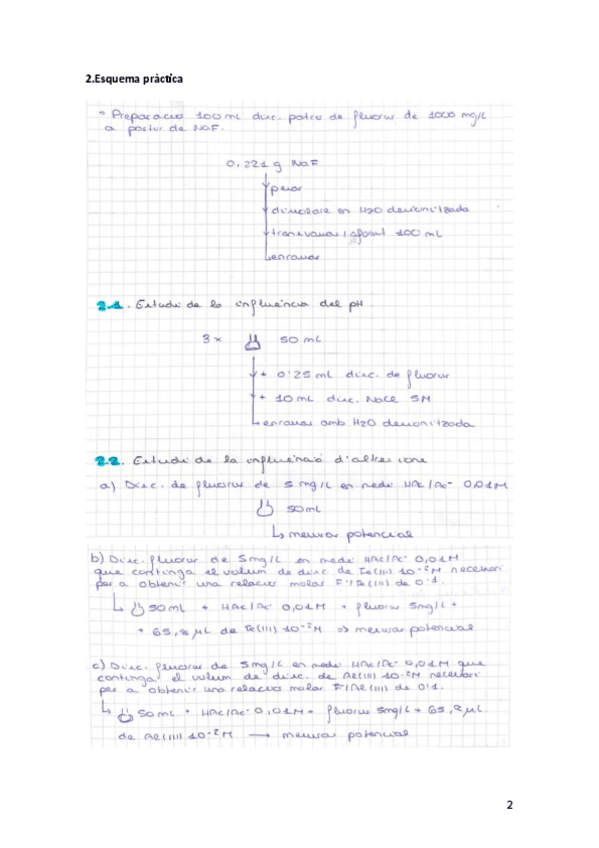 2.Esquema pràctica
• Preparació 100 mL disc. patró de fluorur de 1000 mg/L
a partir de NaF.
0,221 g NaF
pesar
dissoldre en H2O desionitzada
transvasar i aforar 100 mL
enrasar
2.1. Estudi de la influència del pH
3 x 50 mL
+ 0'25 mL disc. de fluorur
+ 10 mL disc. NaCl 5M
enrasar amb H2O desionitzada
2.2. Estudi de la influència d'altres ions
a) Disc. de fluorur de 5 mg/L en medi HAc/Ac- 0,01M
50mL
↳ mesurar potencial
b) Disc. fluorur de 5mg/L en medi HAc/Ac- 0,01M
que continga el volum de disc. de Fe(III) 10⁻²M necessari
per a obtenir una relació molar F/Fe(III) de 0'1.
↳ 50mL + HAc/Ac- 0,01M + fluorur 5mg/L +
+ 65,8 µL de Fe(III) 10⁻²M ⇒ mesurar potencial
c) Disc. fluorur de 5mg/L en medi HAc/Ac- 0,01M que
continga el volum de disc. de Al(III) 10⁻²M necessari
per a obtenir una relació molar F/Al(III) de 0'1.
↳ 50mL + HAc/Ac- 0,01M + fluorur 5mg/L + 65,8 µL
de Al(III) 10⁻²M → mesurar potencial
2